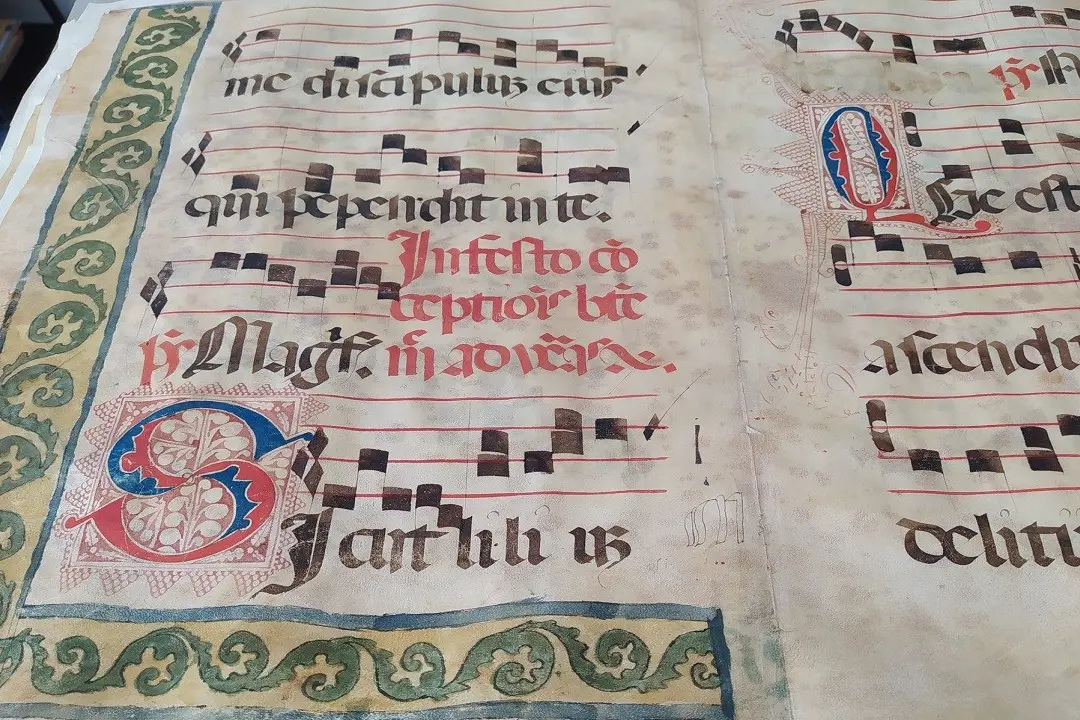 me discipulus eius
qui pependit in te.
In festo cō
ceptiōis btē
ps̄ Magf̄. m̄ ad vēs
SIcut lili us
ps̄
QUe est
ascendit
deliti